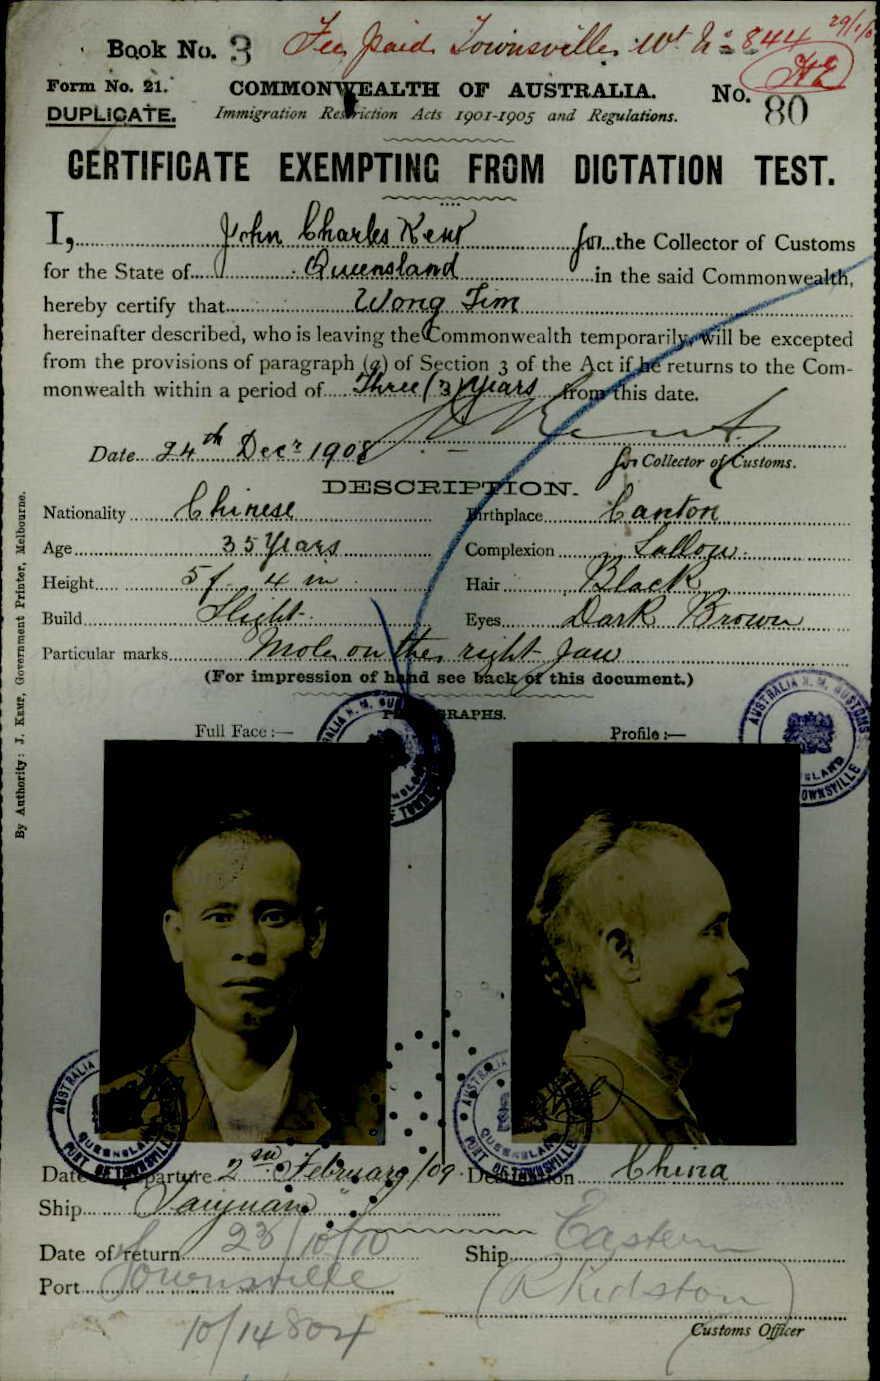 Book No. 3 Fee paid Townsville 29/1/
Form No. 21. COMMONWEALTH OF AUSTRALIA. No. 80
DUPLICATE. Immigration Restriction Acts 1901-1905 and Regulations.
CERTIFICATE EXEMPTING FROM DICTATION TEST.
I, John Charles Kent for the Collector of Customs
for the State of Queensland in the said Commonwealth,
hereby certify that Wong Tim
hereinafter described, who is leaving the Commonwealth temporarily, will be excepted
from the provisions of paragraph (a) of Section 3 of the Act if he returns to the Com-
monwealth within a period of Three (3) years from this date.
Date 24th Decr 1908 for Collector of Customs.
DESCRIPTION.
Nationality Chinese Birthplace Canton
Age 35 Years Complexion Sallow.
Height 5 f 4 in Hair Black
Build Slight Eyes Dark Brown
Particular marks Mole on the right jaw
(For impression of hand see back of this document.)
PHOTOGRAPHS.
Full Face :— Profile :—
AUSTRALIA H. M. CUSTOMS QUEENSLAND PORT OF TOWNSVILLE
AUSTRALIA H. M. CUSTOMS QUEENSLAND PORT OF TOWNSVILLE
By Authority: J. Kemp, Government Printer, Melbourne.
AUSTRALIA QUEENSLAND PORT OF TOWNSVILLE
AUSTRALIA QUEENSLAND PORT OF TOWNSVILLE
Date of departure 2nd February/09 Destination China
Ship Taiyuan
Date of return 23/10/10 Ship Eastern
Port Townsville
10/14804 Customs Officer